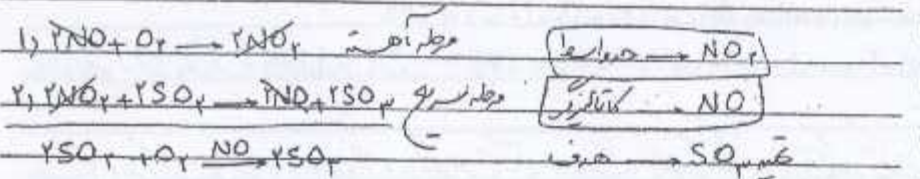 ۱) ۲NO + O₂ ⟶ ۲NO₂ مرحله آهسته حدواسط ⟵ NO₂
۲) ۲NO₂ + ۲SO₂ ⟶ ۲NO + ۲SO₃ مرحله سریع کاتالیزگر ... NO
۲SO₂ + O₂ ⟶NO ۲SO₃ هدف ⟵ تهیه SO₃